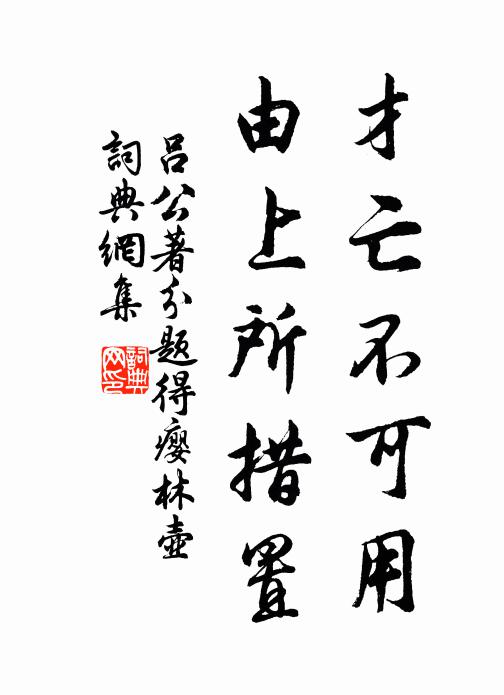 才亡不可用
由上所措置
吕公著分题得瘿林壶
詞典網集
詞典
网印